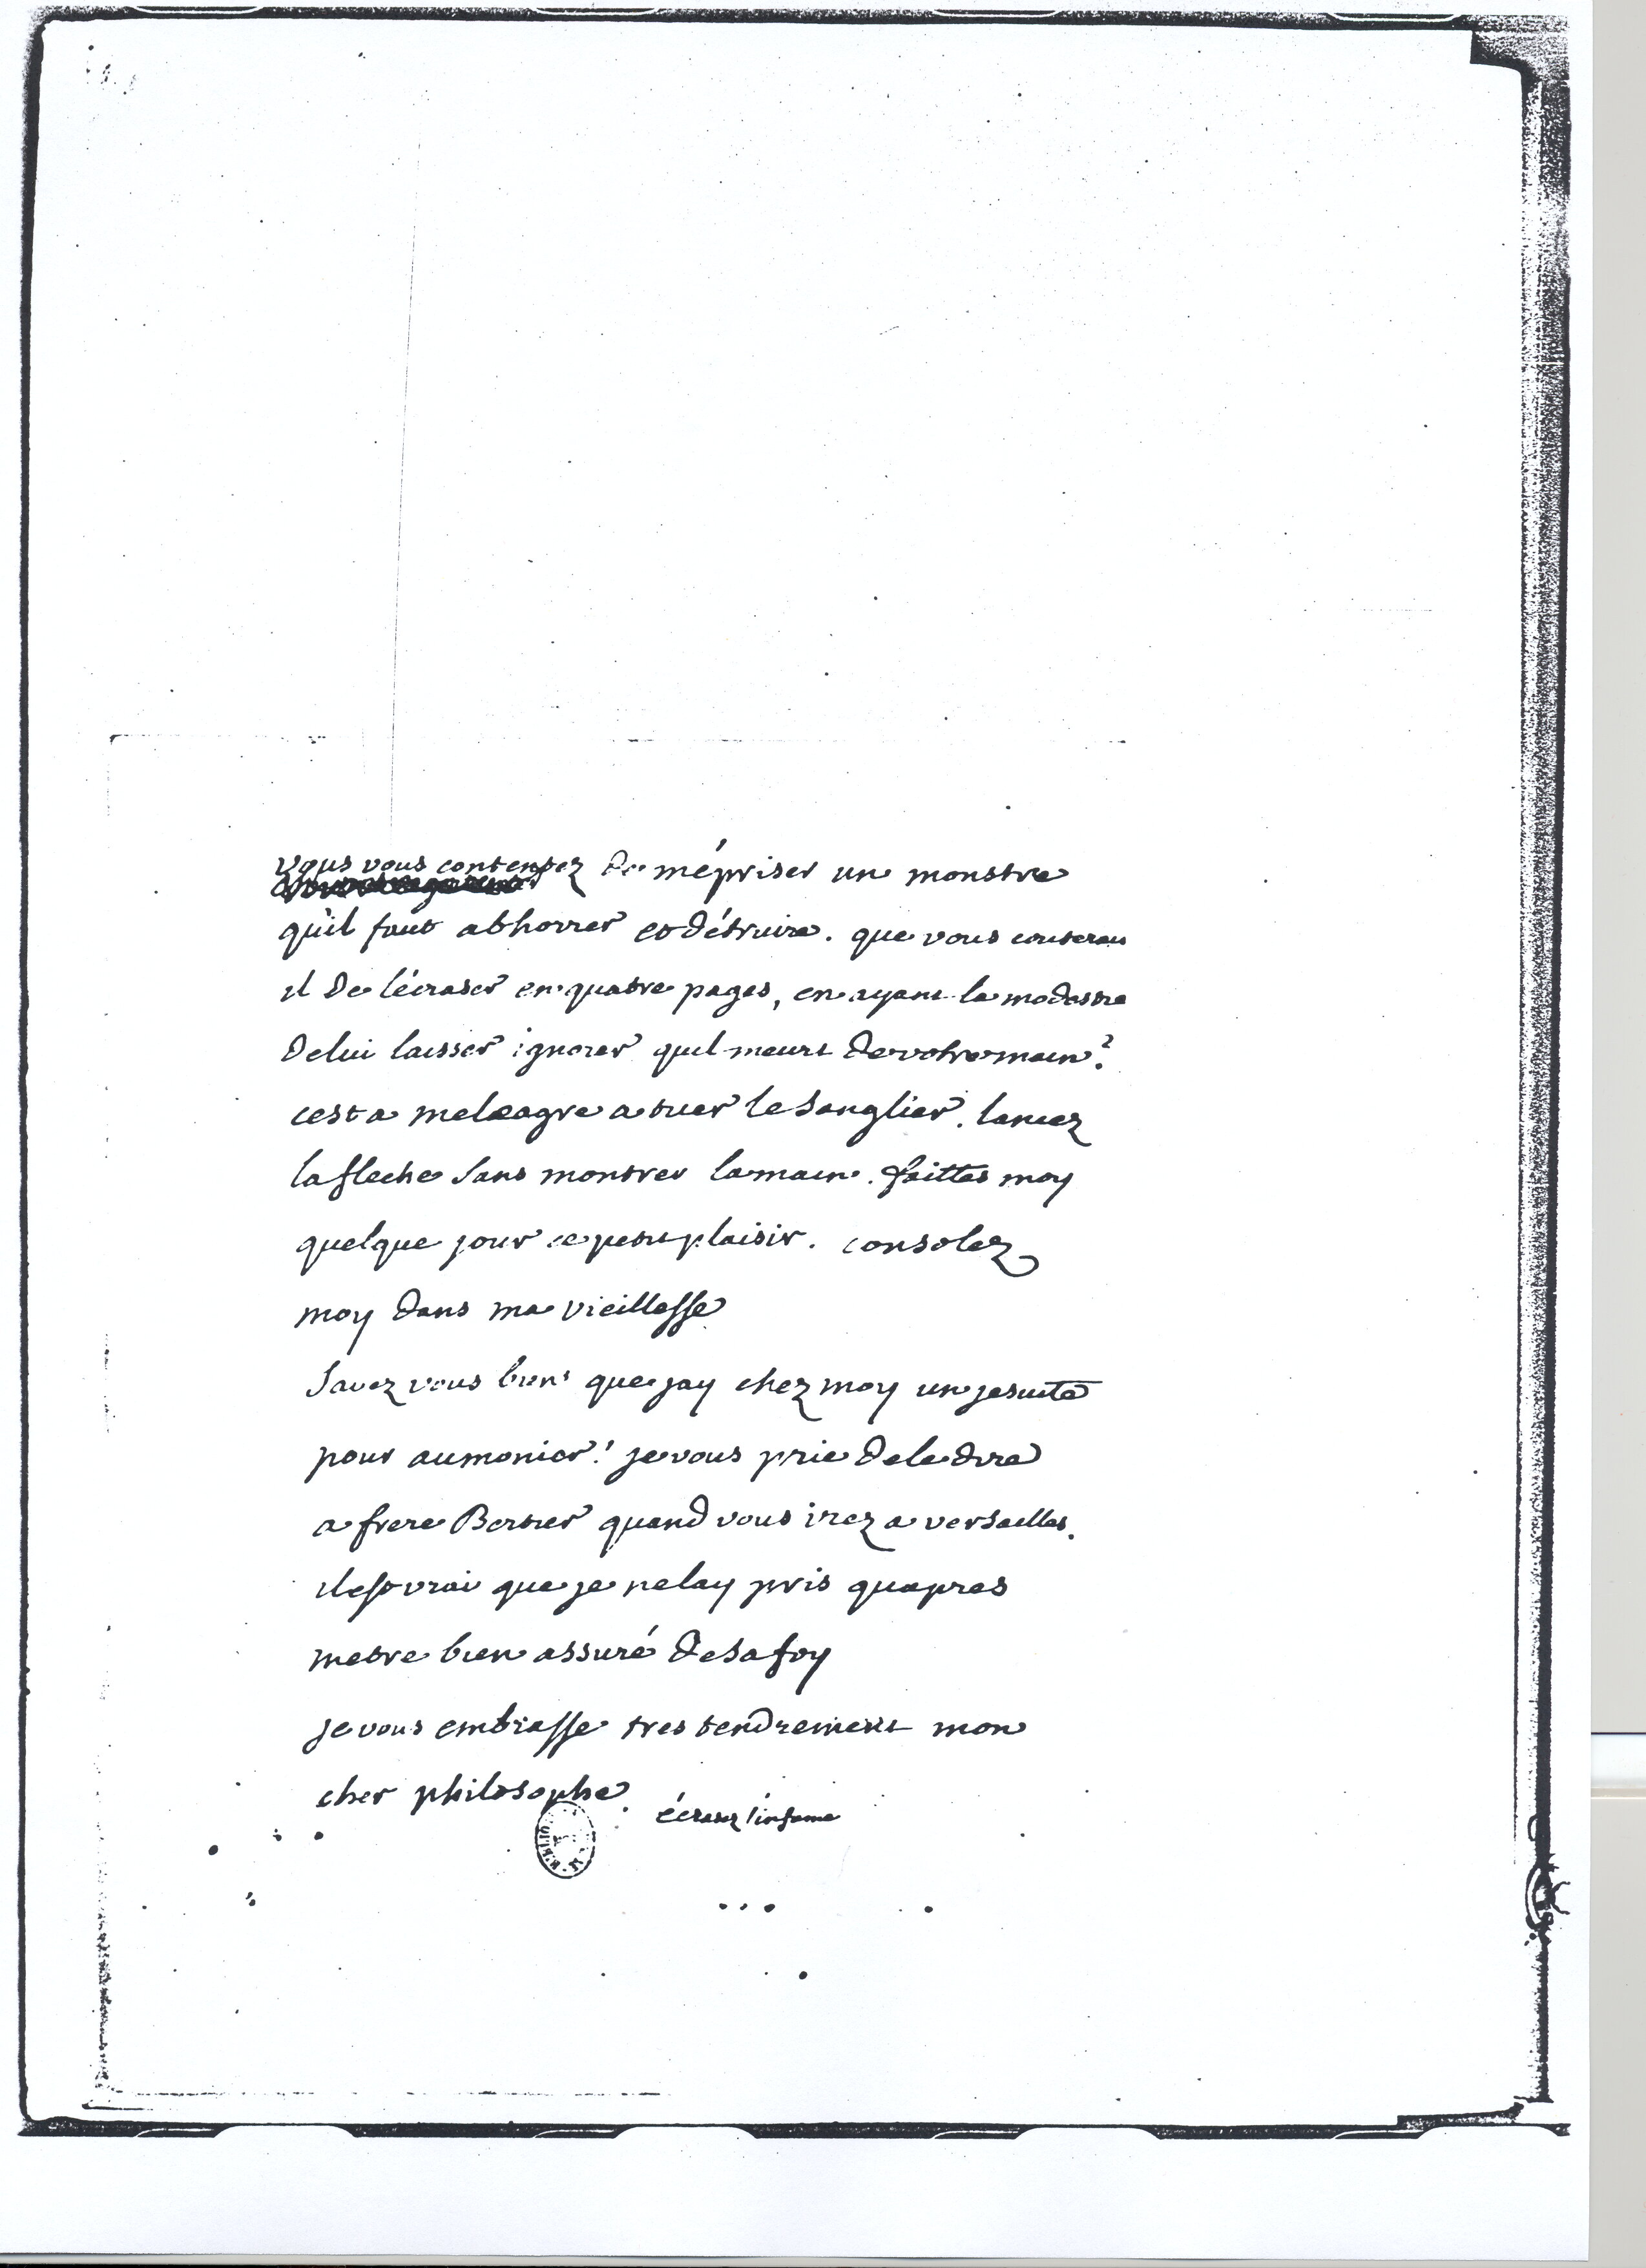 vous vous contentez de mépriser un monstre
qu'il faut abhorrer et détruire. que vous couterait
il de lécraser en quatre pages, en ayant la modestie
de lui laisser ignorer quil meurt de votre main?
cest a meleagre a tuer le sanglier. lancez
la fleche sans montrer la main. faittes moy
quelque jour ce petit plaisir. consolez
moy dans ma vieillesse
Savez vous bien que jay chez moy un jesuite
pour aumonier? je vous prie de le dire
a frere Bertier quand vous irez a versailles.
il est vrai que je nelay pris quapres
metre bien assuré de sa foy
je vous embrasse tres tendrement mon
cher philosophe.
écrasez l'infame